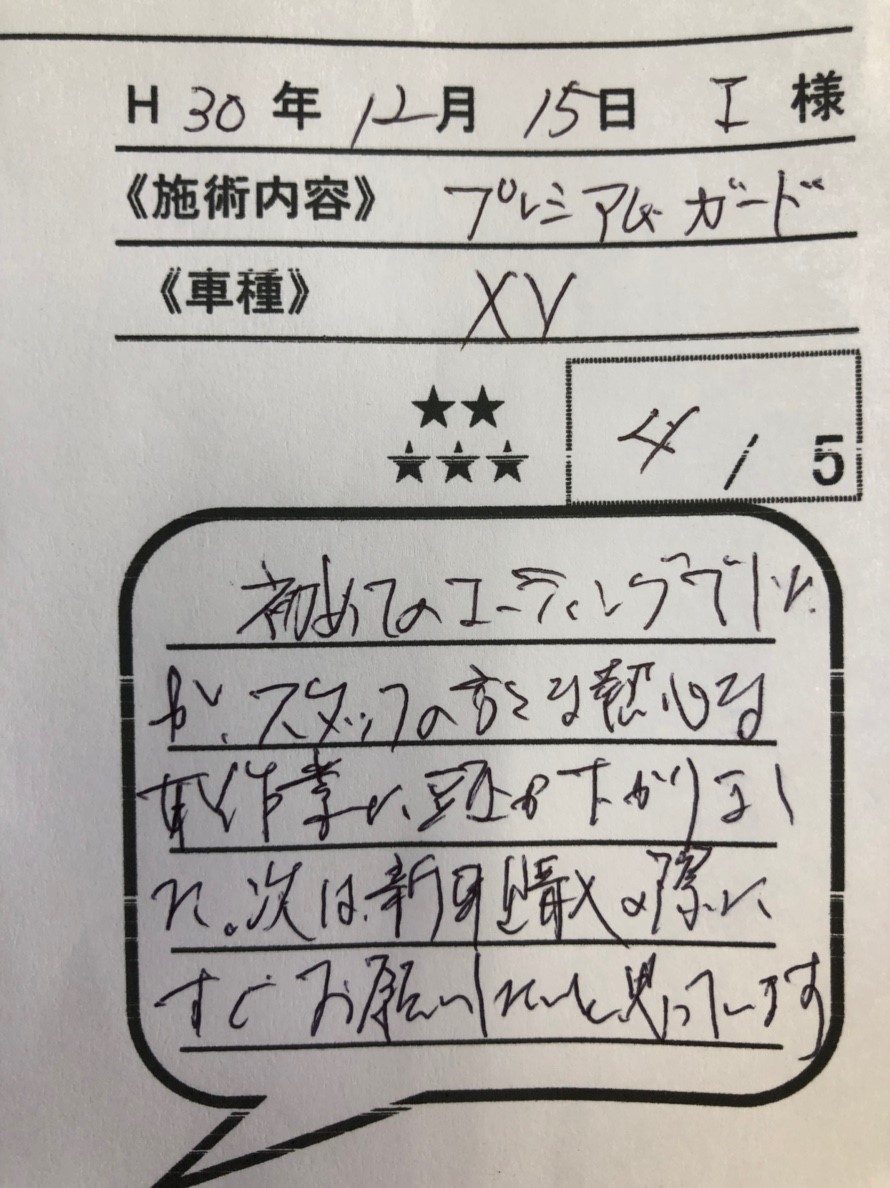 H 30 年 12月 15日 I 様
《施術内容》 プレミアムガード
《車種》 XV
★★
★★★
4 / 5
初めてのコーティングでした
が、スタッフの方々の熱心な
作業に、頭が下がりまし
た。次は、新車の際に、
すぐお願いしたいと思っています